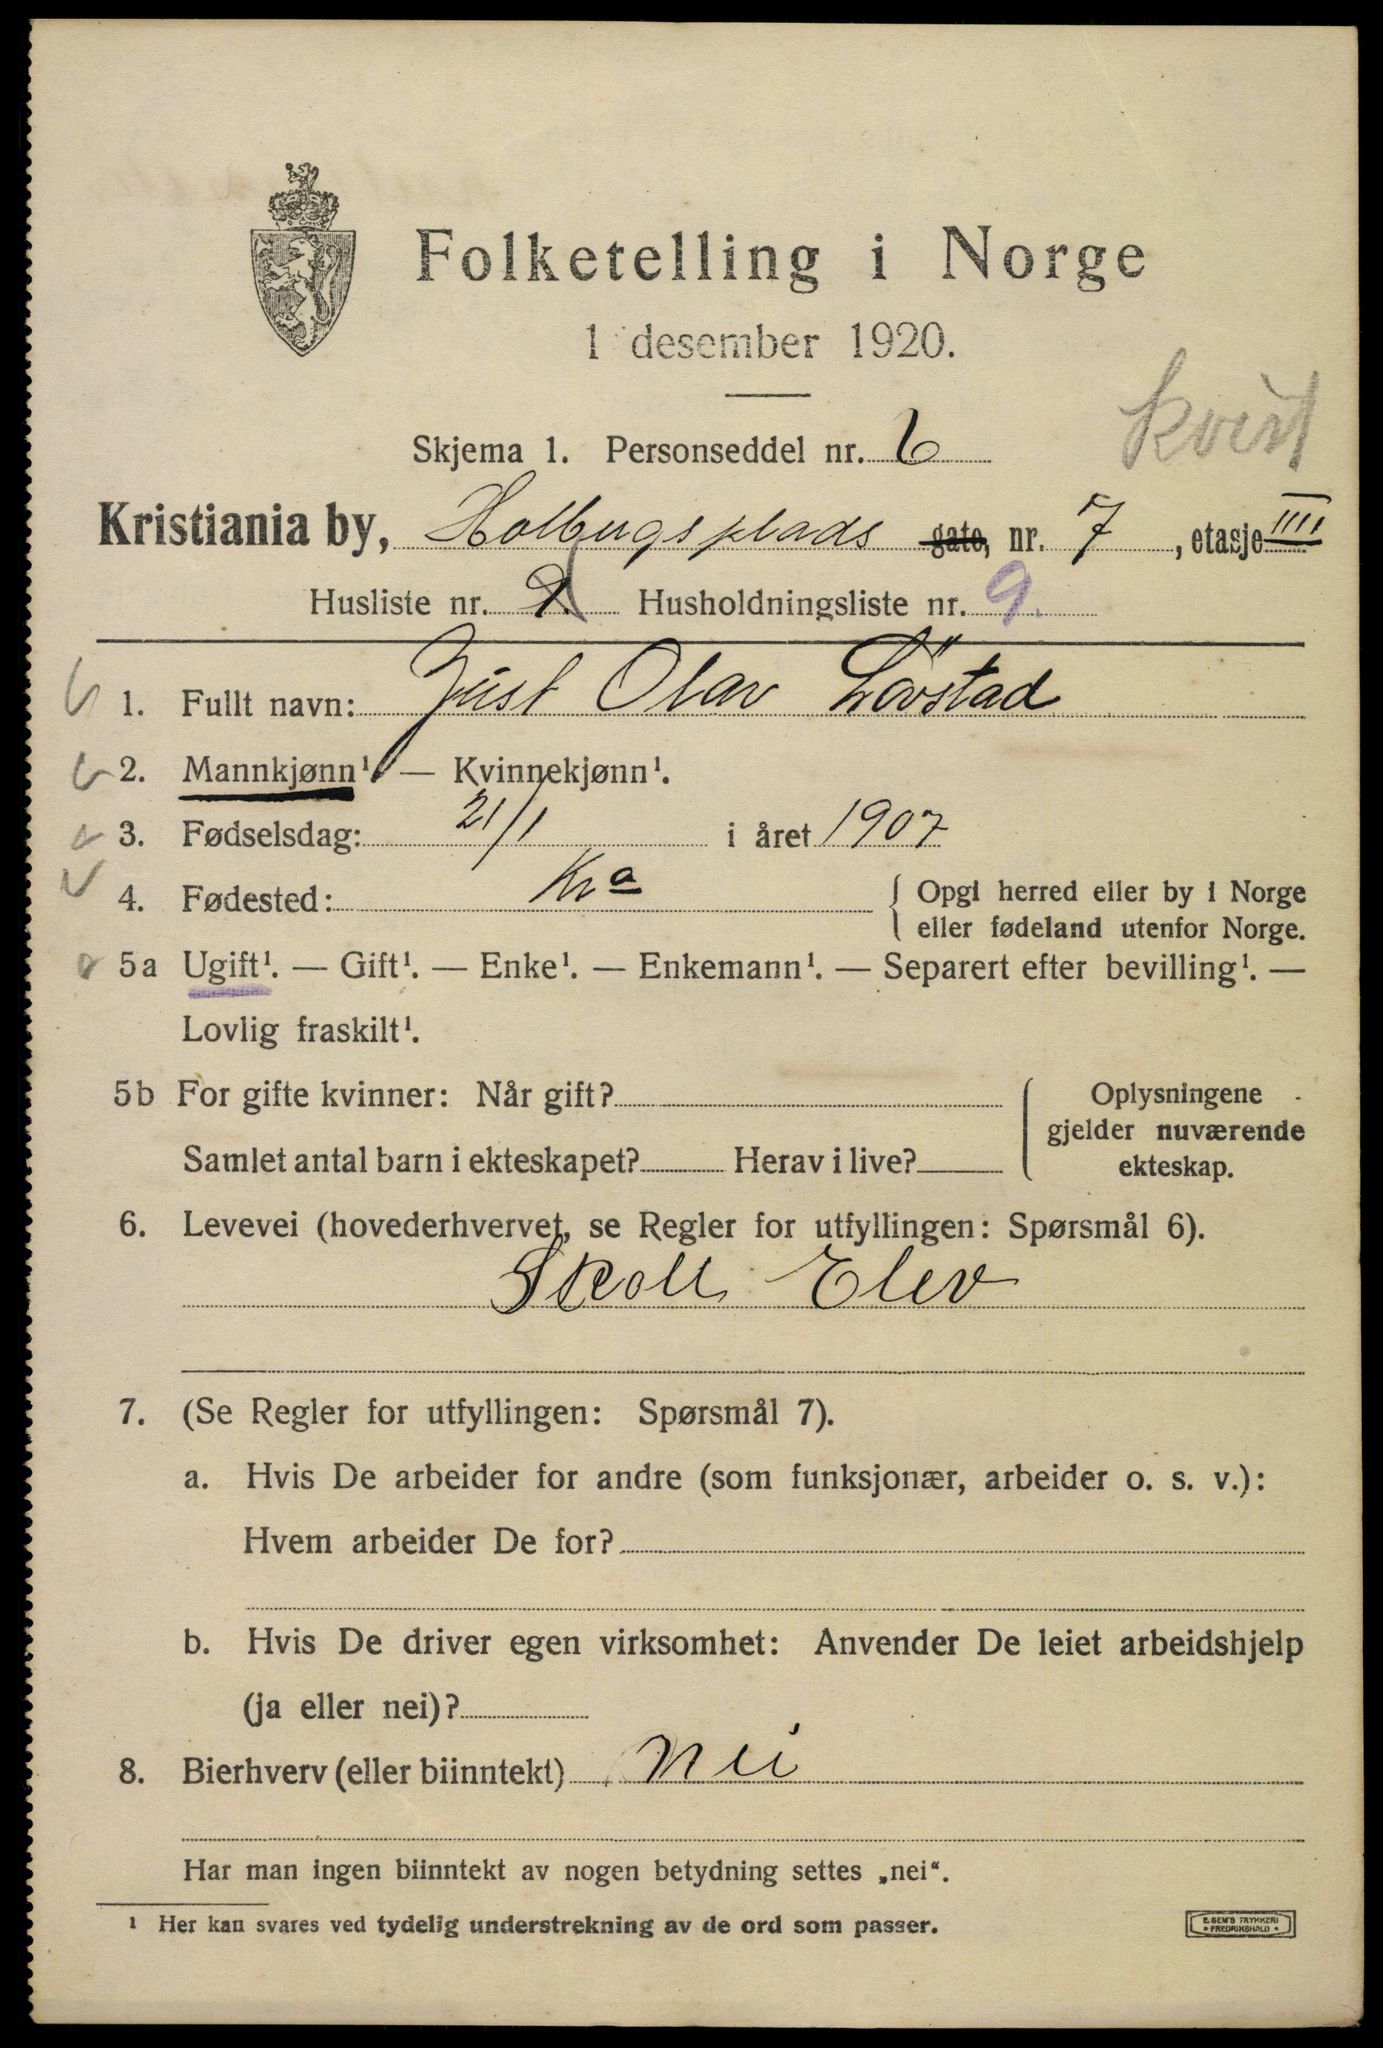 Folketelling i Norge
1 desember 1920.
kvist
Skjema 1. Personseddel nr. 6
Kristiania by, Holbugsplads gate, nr. 7, etasje IIII
Husliste nr. Husholdningsliste nr. 9.
1. Fullt navn: Just Olav Lövstad
2. Mannkjønn¹. — Kvinnekjønn¹.
3. Fødselsdag: 21/1 i året 1907
4. Fødested: Kra { Opgi herred eller by i Norge
eller fødeland utenfor Norge.
5a Ugift¹. — Gift¹. — Enke¹. — Enkemann¹. — Separert efter bevilling¹. —
Lovlig fraskilt¹.
5b For gifte kvinner: Når gift? Oplysningene
gjelder nuværende
Samlet antal barn i ekteskapet? Herav i live? ekteskap.
6. Levevei (hovederhvervet, se Regler for utfyllingen: Spørsmål 6).
Skoll Elev
7. (Se Regler for utfyllingen: Spørsmål 7).
a. Hvis De arbeider for andre (som funksjonær, arbeider o. s. v.):
Hvem arbeider De for?
b. Hvis De driver egen virksomhet: Anvender De leiet arbeidshjelp
(ja eller nei)?
8. Bierhverv (eller biinntekt) nei
Har man ingen biinntekt av nogen betydning settes „nei“.
¹ Her kan svares ved tydelig understrekning av de ord som passer.
E. SEM'S TRYKKERI
• FREDRIKSHALD •